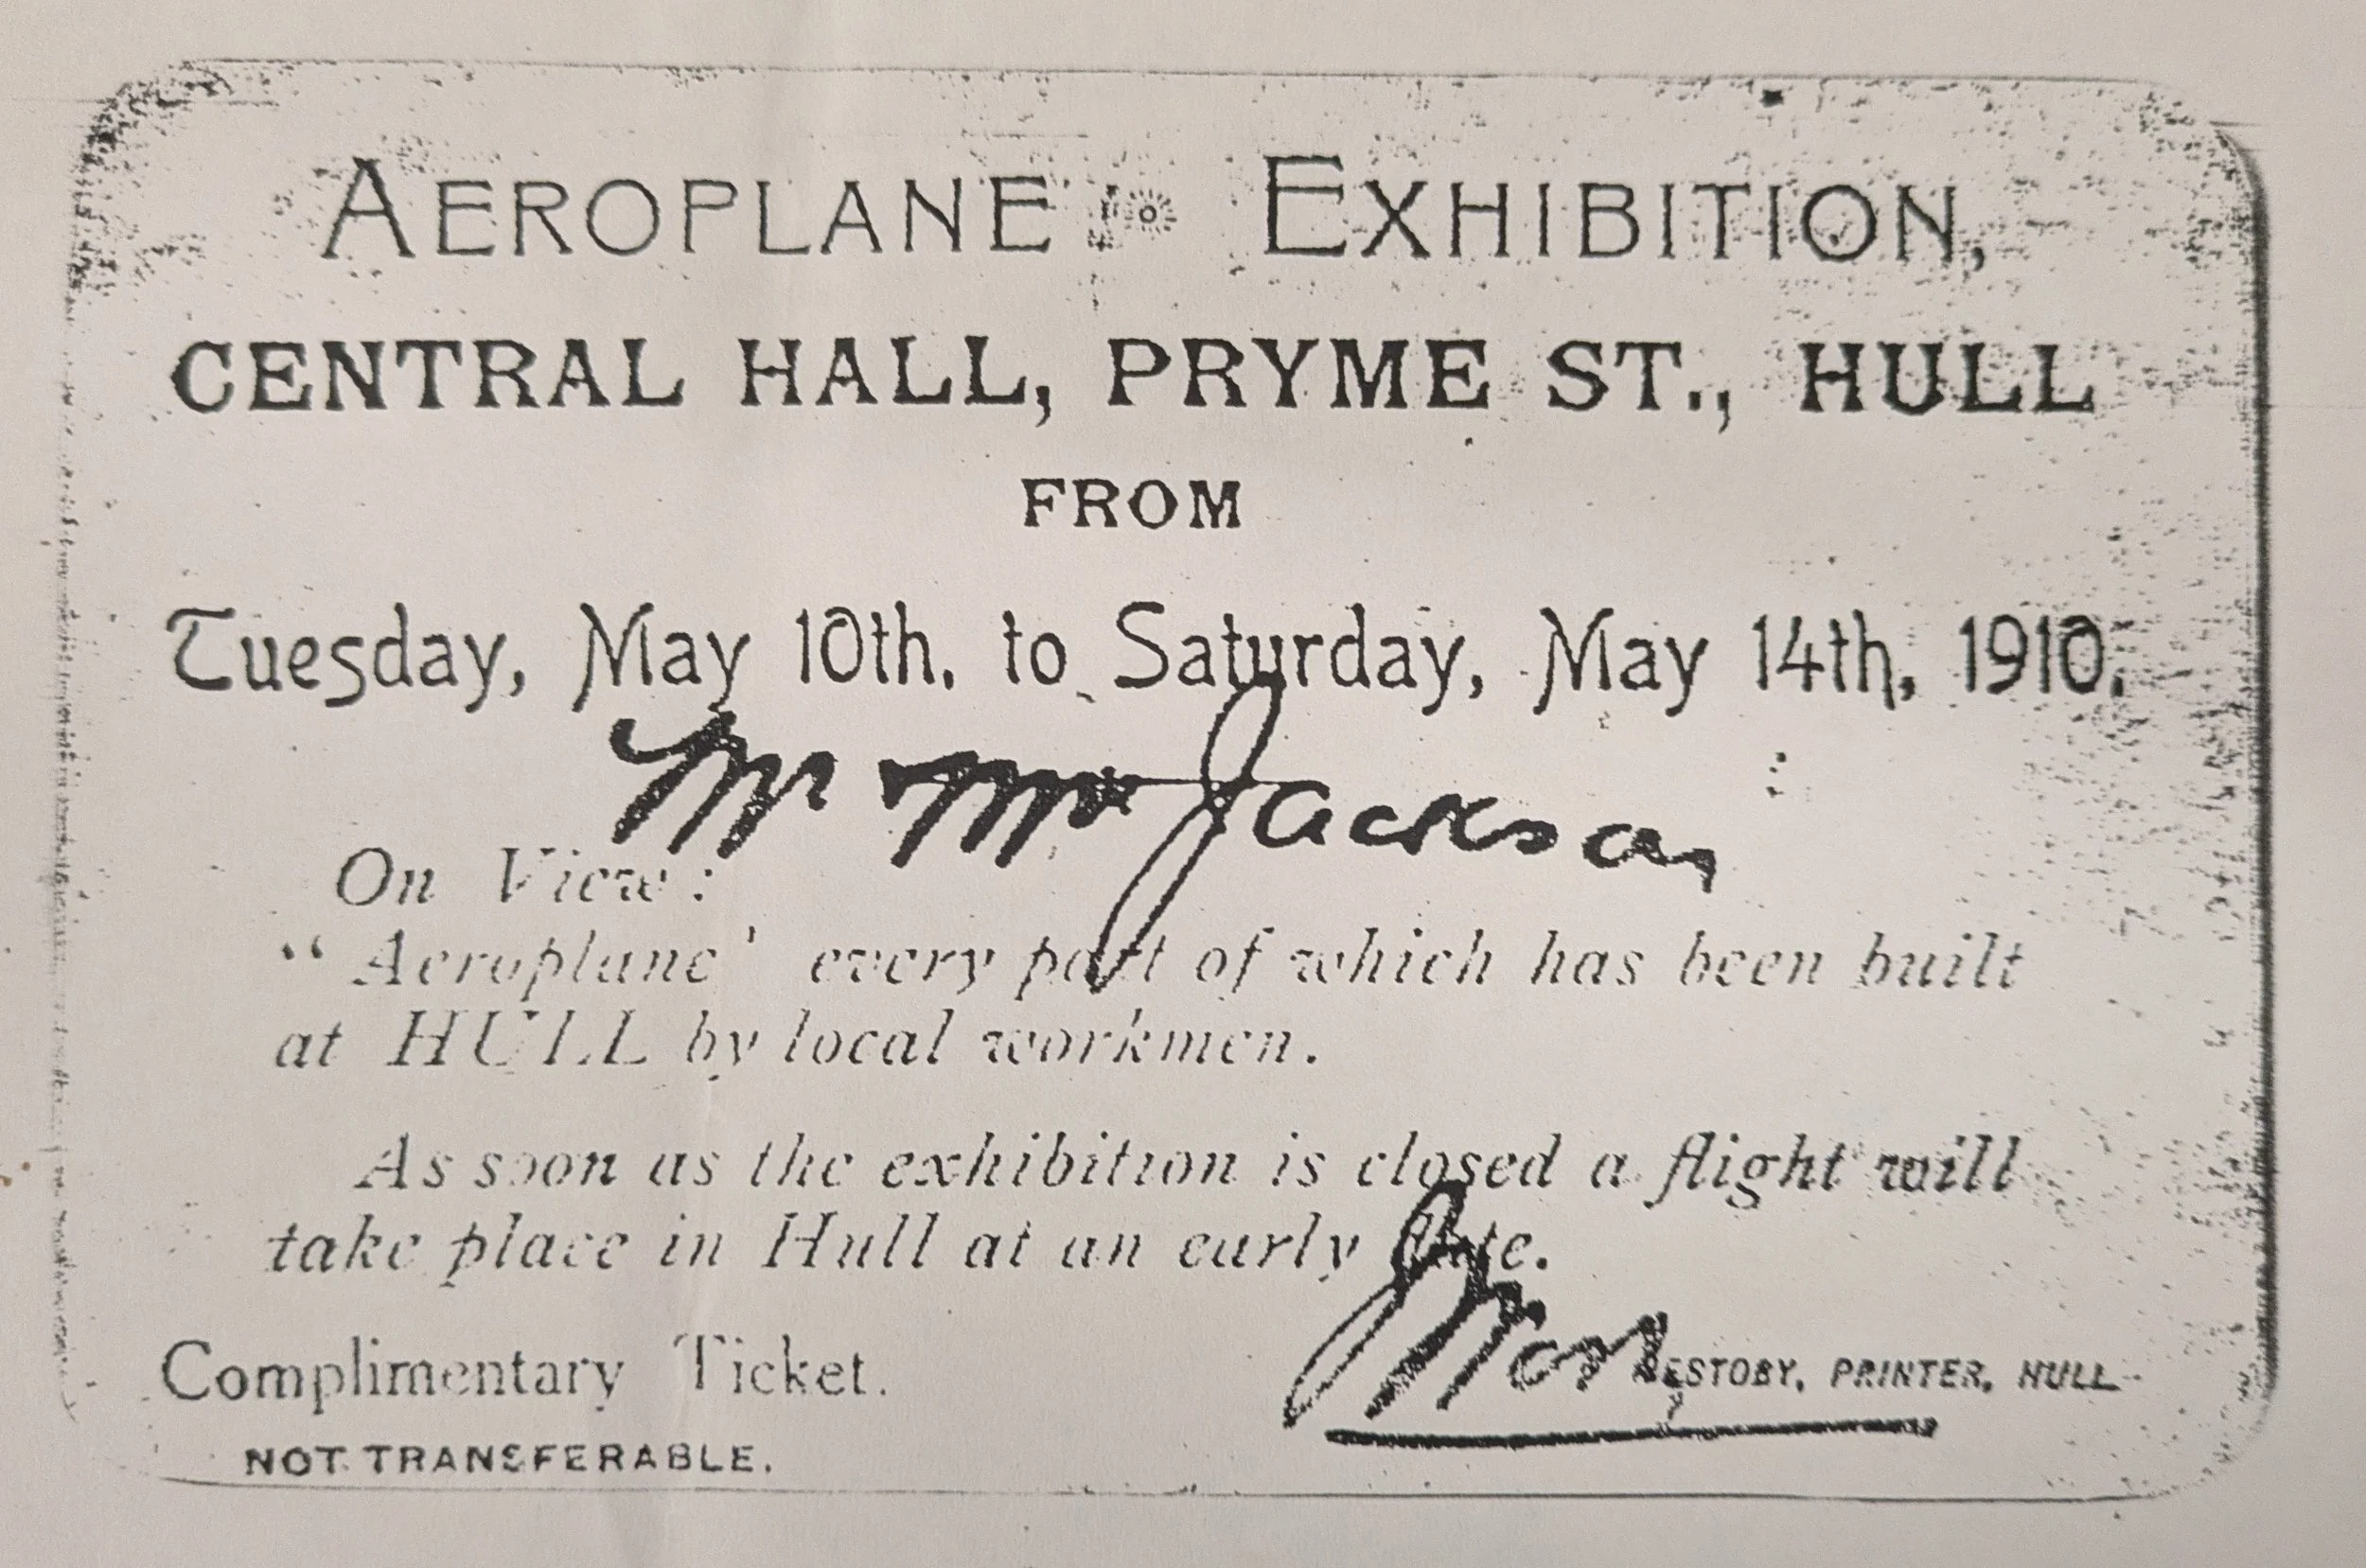 AEROPLANE EXHIBITION,
CENTRAL HALL, PRYME ST., HULL
FROM
Tuesday, May 10th, to Saturday, May 14th, 1910.
Mr Jackson
On View:
"Aeroplane' every part of which has been built
at HULL by local workmen.
As soon as the exhibition is closed a flight will
take place in Hull at an early date.
Complimentary Ticket.
NOT TRANSFERABLE.
PRINTER, HULL